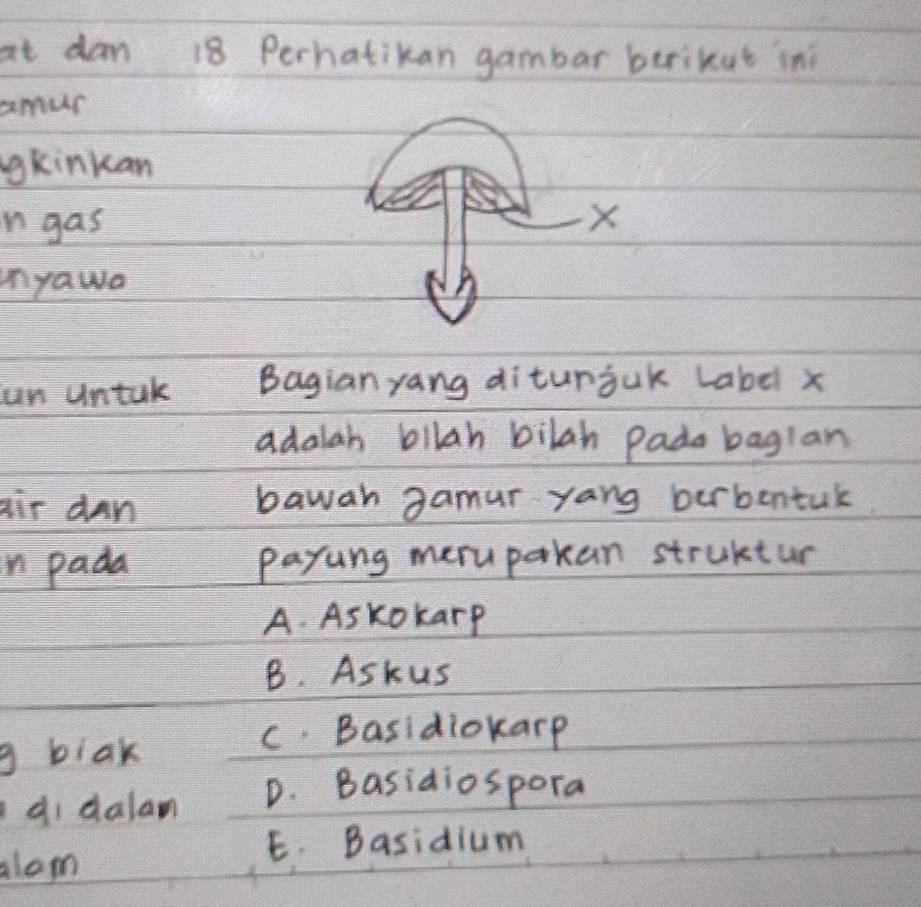 at dan
amur
gkinkan
n gas
nyawa
un untuk
air dan
n pada
g biak
di dalam
alam
18 Perhatikan gambar berikut ini
X
Bagian yang ditunjuk Label x
adalah bilah bilah pada bagian
bawah jamur yang berbentuk
payung merupakan struktur
A. Askokarp
B. Askus
C. Basidiokarp
D. Basidiospora
E. Basidium